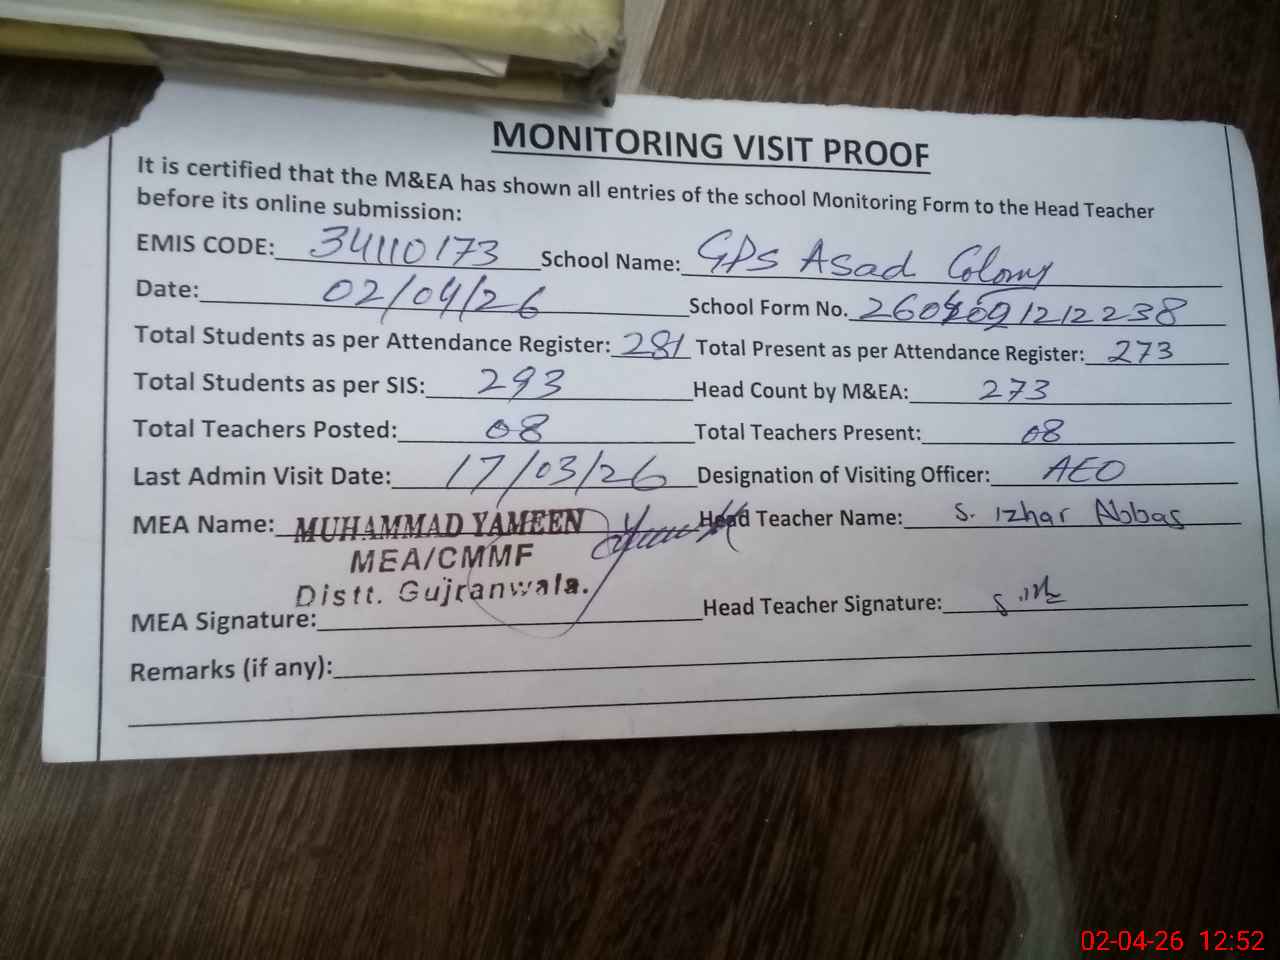 MONITORING VISIT PROOF
It is certified that the M&EA has shown all entries of the school Monitoring Form to the Head Teacher
before its online submission:
EMIS CODE: 34110173 School Name: GPS Asad Colony
Date: 02/04/26 School Form No.
Total Students as per Attendance Register: 281 Total Present as per Attendance Register: 273
Total Students as per SIS: 293 Head Count by M&EA: 273
Total Teachers Posted: 08 Total Teachers Present: 08
Last Admin Visit Date: 17/03/26 Designation of Visiting Officer: AEO
MEA Name: MUHAMMAD YAMEEN Head Teacher Name: S. Izhar Abbas
MEA/CMMF
Distt. Gujranwala.
MEA Signature: Head Teacher Signature:
Remarks (if any):
02-04-26 12:52